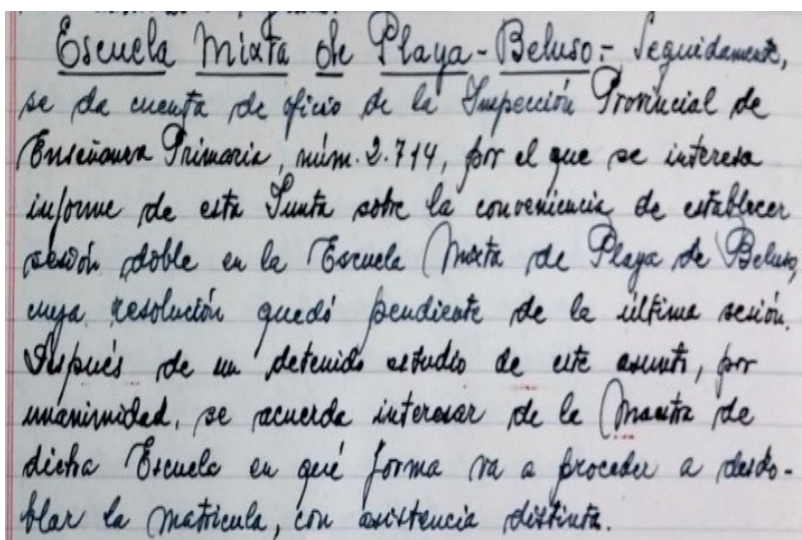 Escuela Mixta de Playa-Beluso.- Seguidamente,
se da cuenta de oficio de la Inspección Provincial de
Enseñanza Primaria, núm. 2.714, por el que se interesa
informe de esta Junta sobre la conveniencia de establecer
sesión doble en la Escuela Mixta de Playa de Beluso,
cuya resolución quedó pendiente de la última sesión.
Después de un detenido estudio de este asunto, por
unanimidad, se acuerda interesar de la Maestra de
dicha Escuela en qué forma va a proceder a desdo-
blar la matrícula, con asistencia distinta.